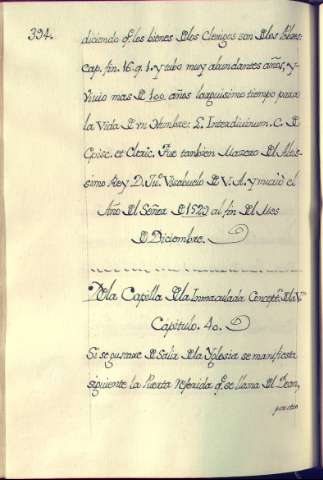 394.
diciendo q.e los bienes de los Clerigos son de los Pobres:
cap. fin. 16. q. 1. y tubo muy abundantes años, y
vivio mas de 100 años larguisimo tiempo para
la Vida de vn Hombre: L. Interdivinum. C. de
Episc. et Cleric. Fue tambien Mazero del Altis-
simo Rey D. Ju.º Visabuelo de V. A. y murió el
Año del Señor de 1523 al fin del Mes
de Diciembre.
De la Capilla de la Inmaculada Concep.n de la V.n
Capitulo. 40.
Si se gustare de salir de la Yglesia se manifiesta
siguiente la Puerta referida q.e se llama del Dean,